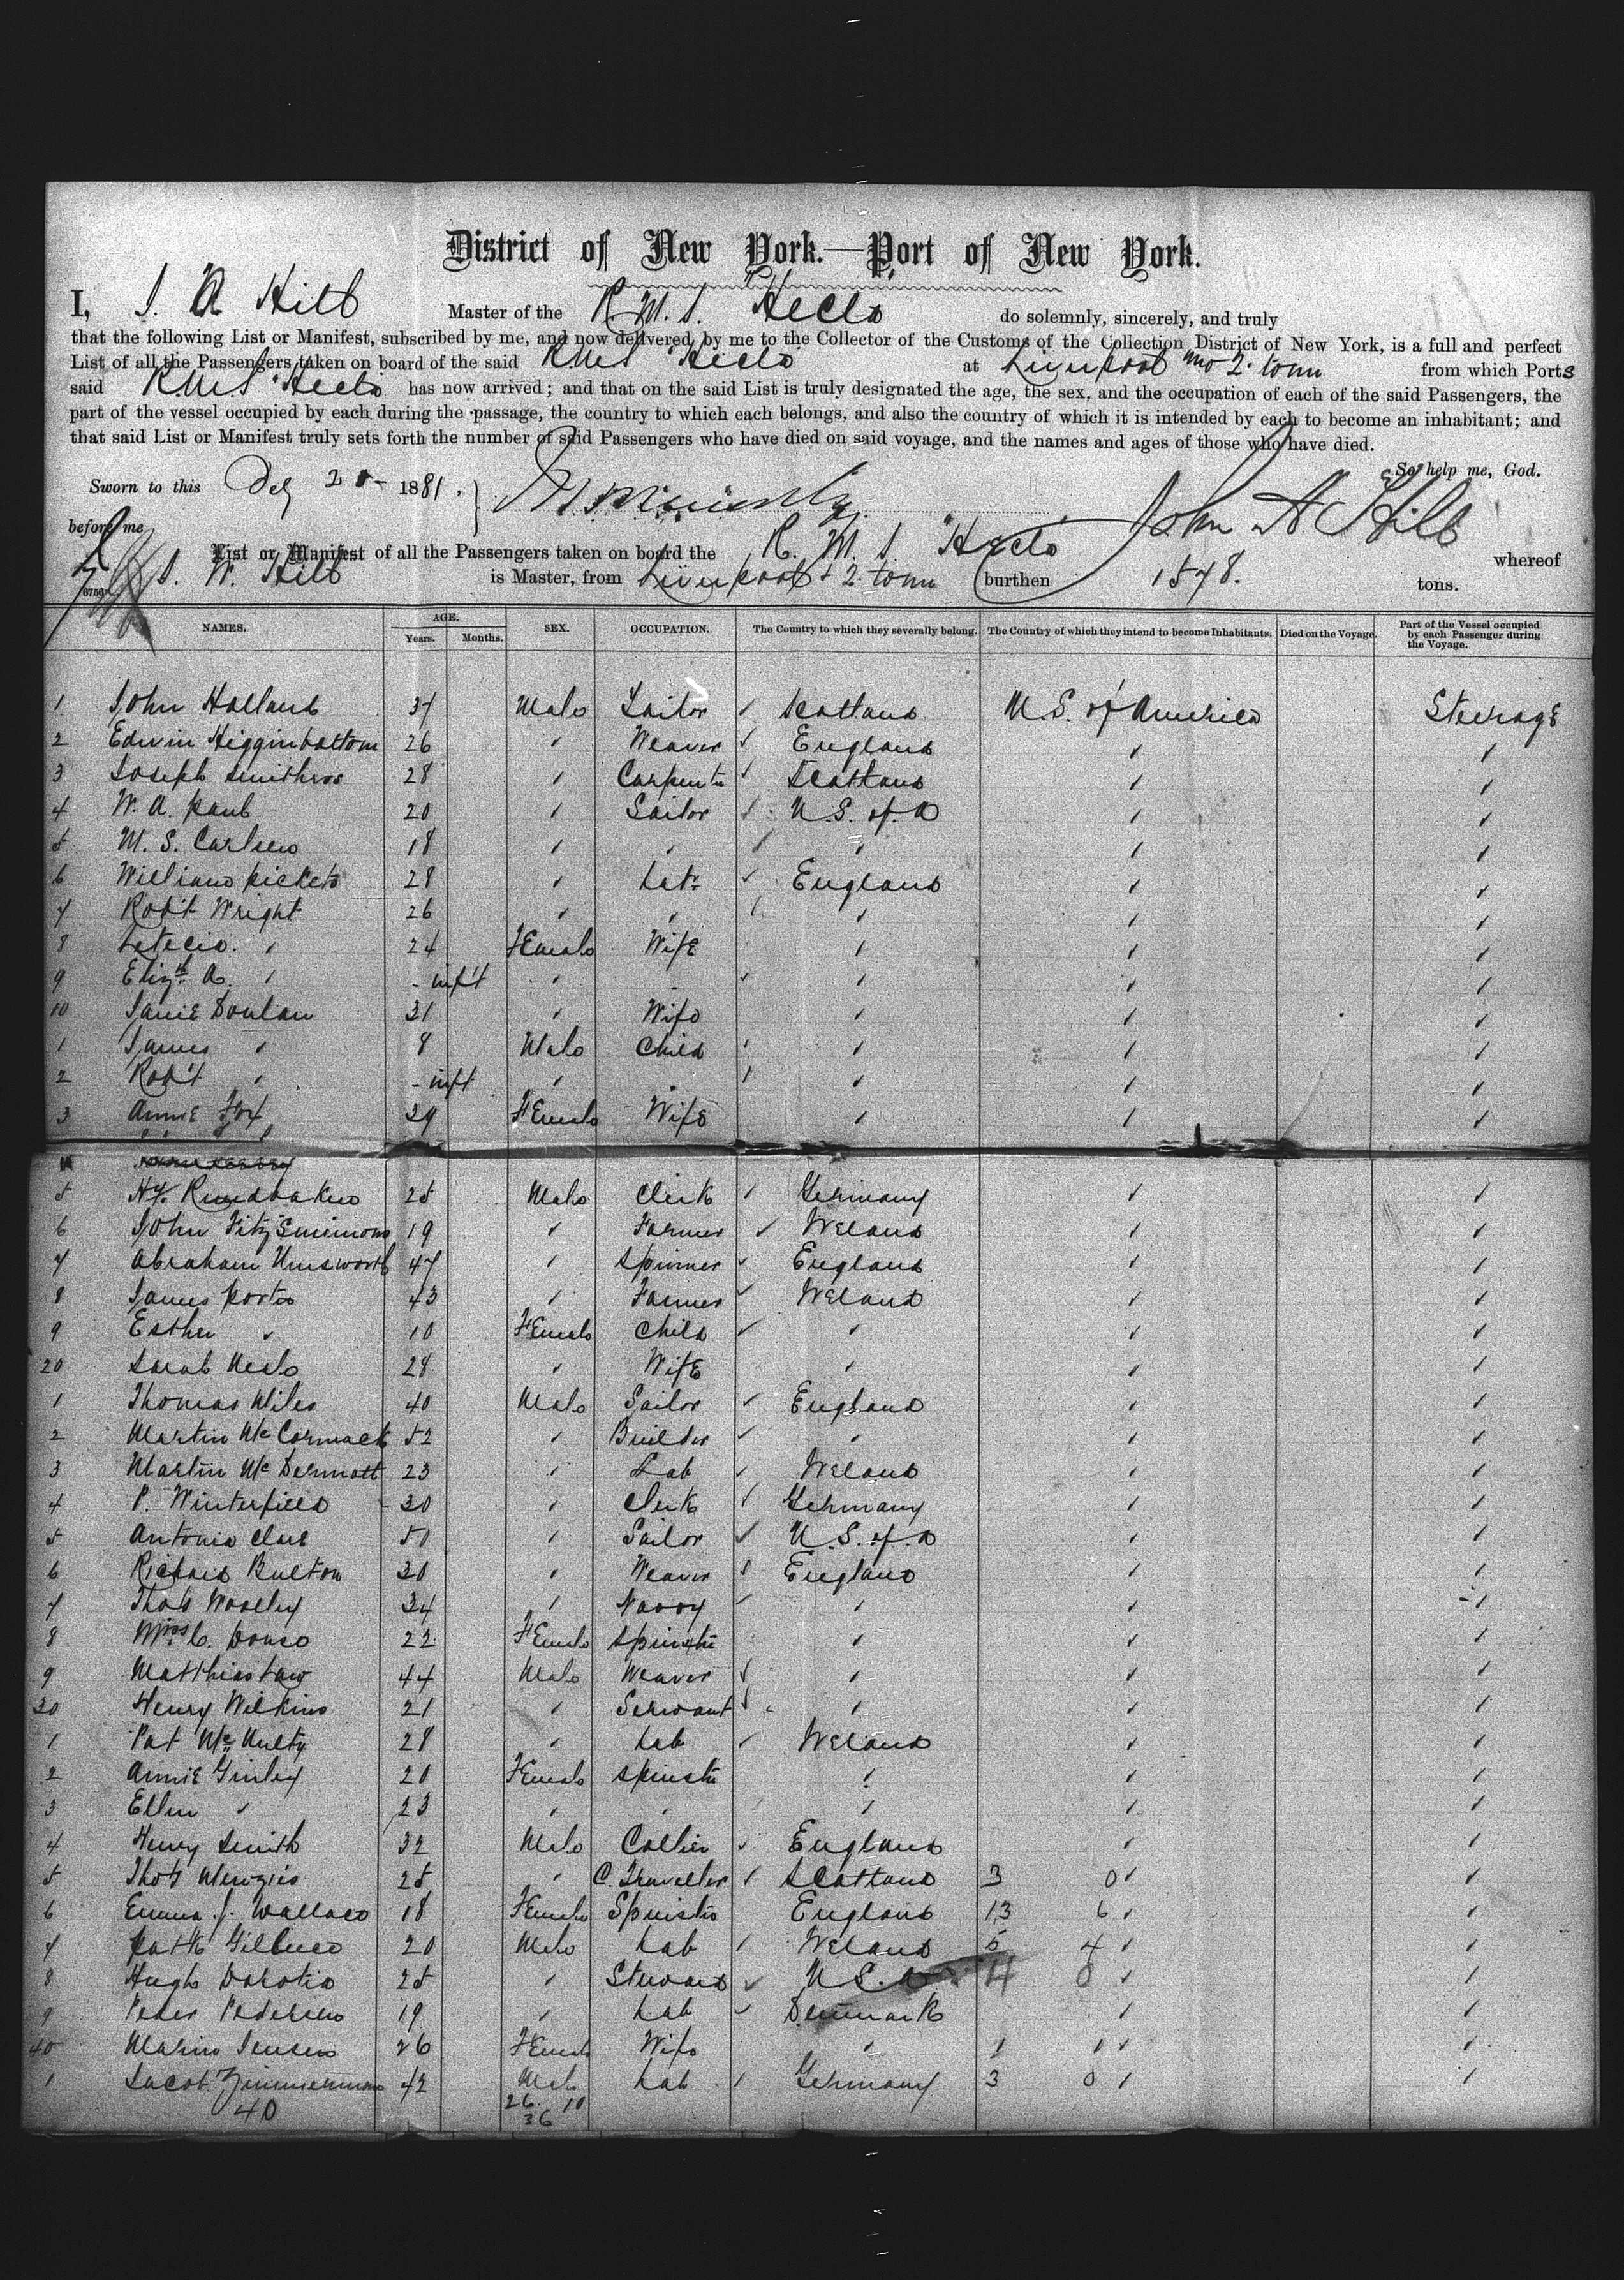 District of New York.—Port of New York.
I, J. A Hill Master of the R. M. S. Hecla do solemnly, sincerely, and truly
that the following List or Manifest, subscribed by me, and now delivered by me to the Collector of the Customs of the Collection District of New York, is a full and perfect
List of all the Passengers taken on board of the said R.M.S Hecla at Liverpool from which Ports
said R.M.S Hecla has now arrived; and that on the said List is truly designated the age, the sex, and the occupation of each of the said Passengers, the
part of the vessel occupied by each during the passage, the country to which each belongs, and also the country of which it is intended by each to become an inhabitant; and
that said List or Manifest truly sets forth the number of said Passengers who have died on said voyage, and the names and ages of those who have died.
So help me, God.
Sworn to this 1881.
before me John A. Hill
List or Manifest of all the Passengers taken on board the R. M. S Hecla whereof
Hill is Master, from Liverpool burthen 1548. tons.
NAMES. AGE. Years. Months. SEX. OCCUPATION. The Country to which they severally belong. The Country of which they intend to become Inhabitants. Died on the Voyage. Part of the Vessel occupied by each Passenger during the Voyage.
1 John Holland Male Sailor Scotland U.S. of America Steerage
2 Edwin Higginbottom 26 " Weaver England " "
3 Joseph 28 " Carpentr Scotland " "
4 W. A. 20 " Sailor U.S. of A " "
5 M. S. Carlsen 18 " " " " "
6 William Rickets 28 " Labr England " "
7 Robt Wright 26 " " " " "
8 Leticia " 24 Female Wife " " "
9 Elizth A. " - inft " " " "
10 Janie Donlan 31 " Wife " " "
1 James " 8 Male Child " " "
2 Robt " - inft " " " " "
3 Annie Fox 29 Female Wife " " "
5 Hy. 25 Male Clerk Germany " "
6 John Fitzsimmons 19 " Farmer Ireland " "
7 Abraham Unsworth 47 " Spinner England " "
8 James Porter 43 " Farmer Ireland " "
9 Esther " 10 Female Child " " "
20 Sarah 28 " Wife " " "
1 Thomas Miles 40 Male Sailor England " "
2 Martin McCormack 52 " Builder " " "
3 Martin McDermott 23 " Lab Ireland " "
4 P. Winterfield 30 " Clerk Germany " "
5 Antonio 50 " Sailor U.S. of A " "
6 Richard Bulton 30 " Weaver England " "
7 Thos Woolley 34 " Navvy " " "
8 Miss C. 22 Female Spinstr " " "
9 Matthias Law 44 Male Weaver " " "
30 Henry Wilkins 21 " Servant " " "
1 Pat McNulty 28 " Lab Ireland " "
2 Annie Ginley 20 Female Spinstr " " "
3 Ellen " 23 " " " " "
4 Henry Smith 32 Male Collier England " "
5 Thos Menzies 25 " C. Traveller Scotland 3 0 " "
6 Emma J. Wallace 18 Female Spinstr England 13 6 " "
7 Patk 20 Male Lab Ireland 5 4 " "
8 Hugh 25 " Steward U S. A 4 0 " "
9 Peter Pedersen 19 " Lab Denmark " "
40 Marin Jensen 26 Female Wife " 1 1 " "
1 Jacob Zimmerman 42 Male Lab Germany 3 0 " "
40 26. 10
36